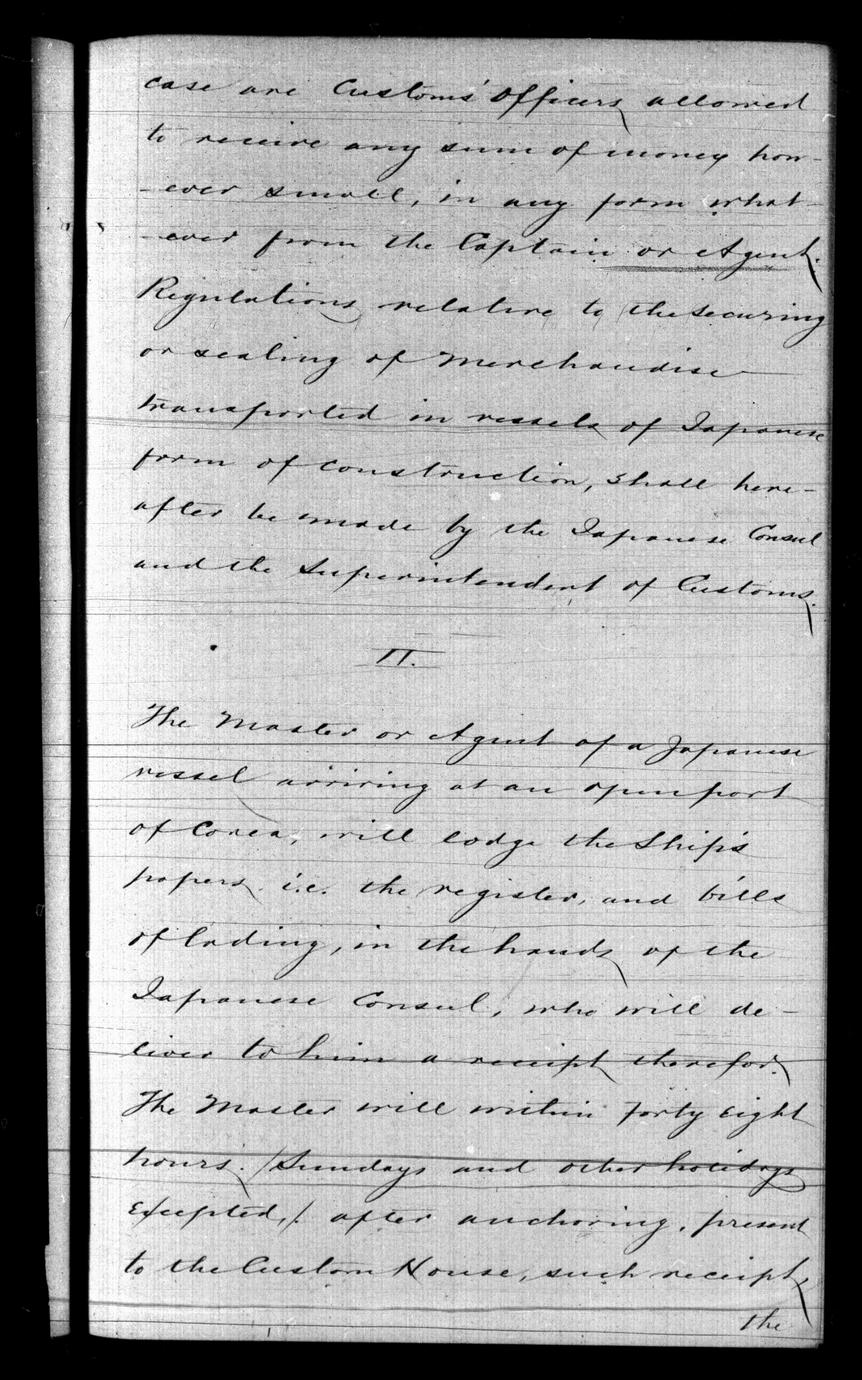 case are Customs' Officers allowed
to receive any sum of money how-
-ever small, in any form what-
-ever from the Captain or Agent.
Regulations relative to the securing
or sealing of Merchandise
transported in vessels of Japanese
form of construction, shall here-
after be made by the Japanese Consul
and the Superintendent of Customs.
II.
The Master or Agent of a Japanese
vessel arriving at an open port
of Corea, will lodge the Ship's
papers i.e. the register, and bills
of lading, in the hands of the
Japanese Consul, who will de-
liver to him a receipt therefor.
The Master will within forty eight
hours. /Sundays and other holidays
excepted,/. after anchoring, present
to the Custom House, such receipt,
the